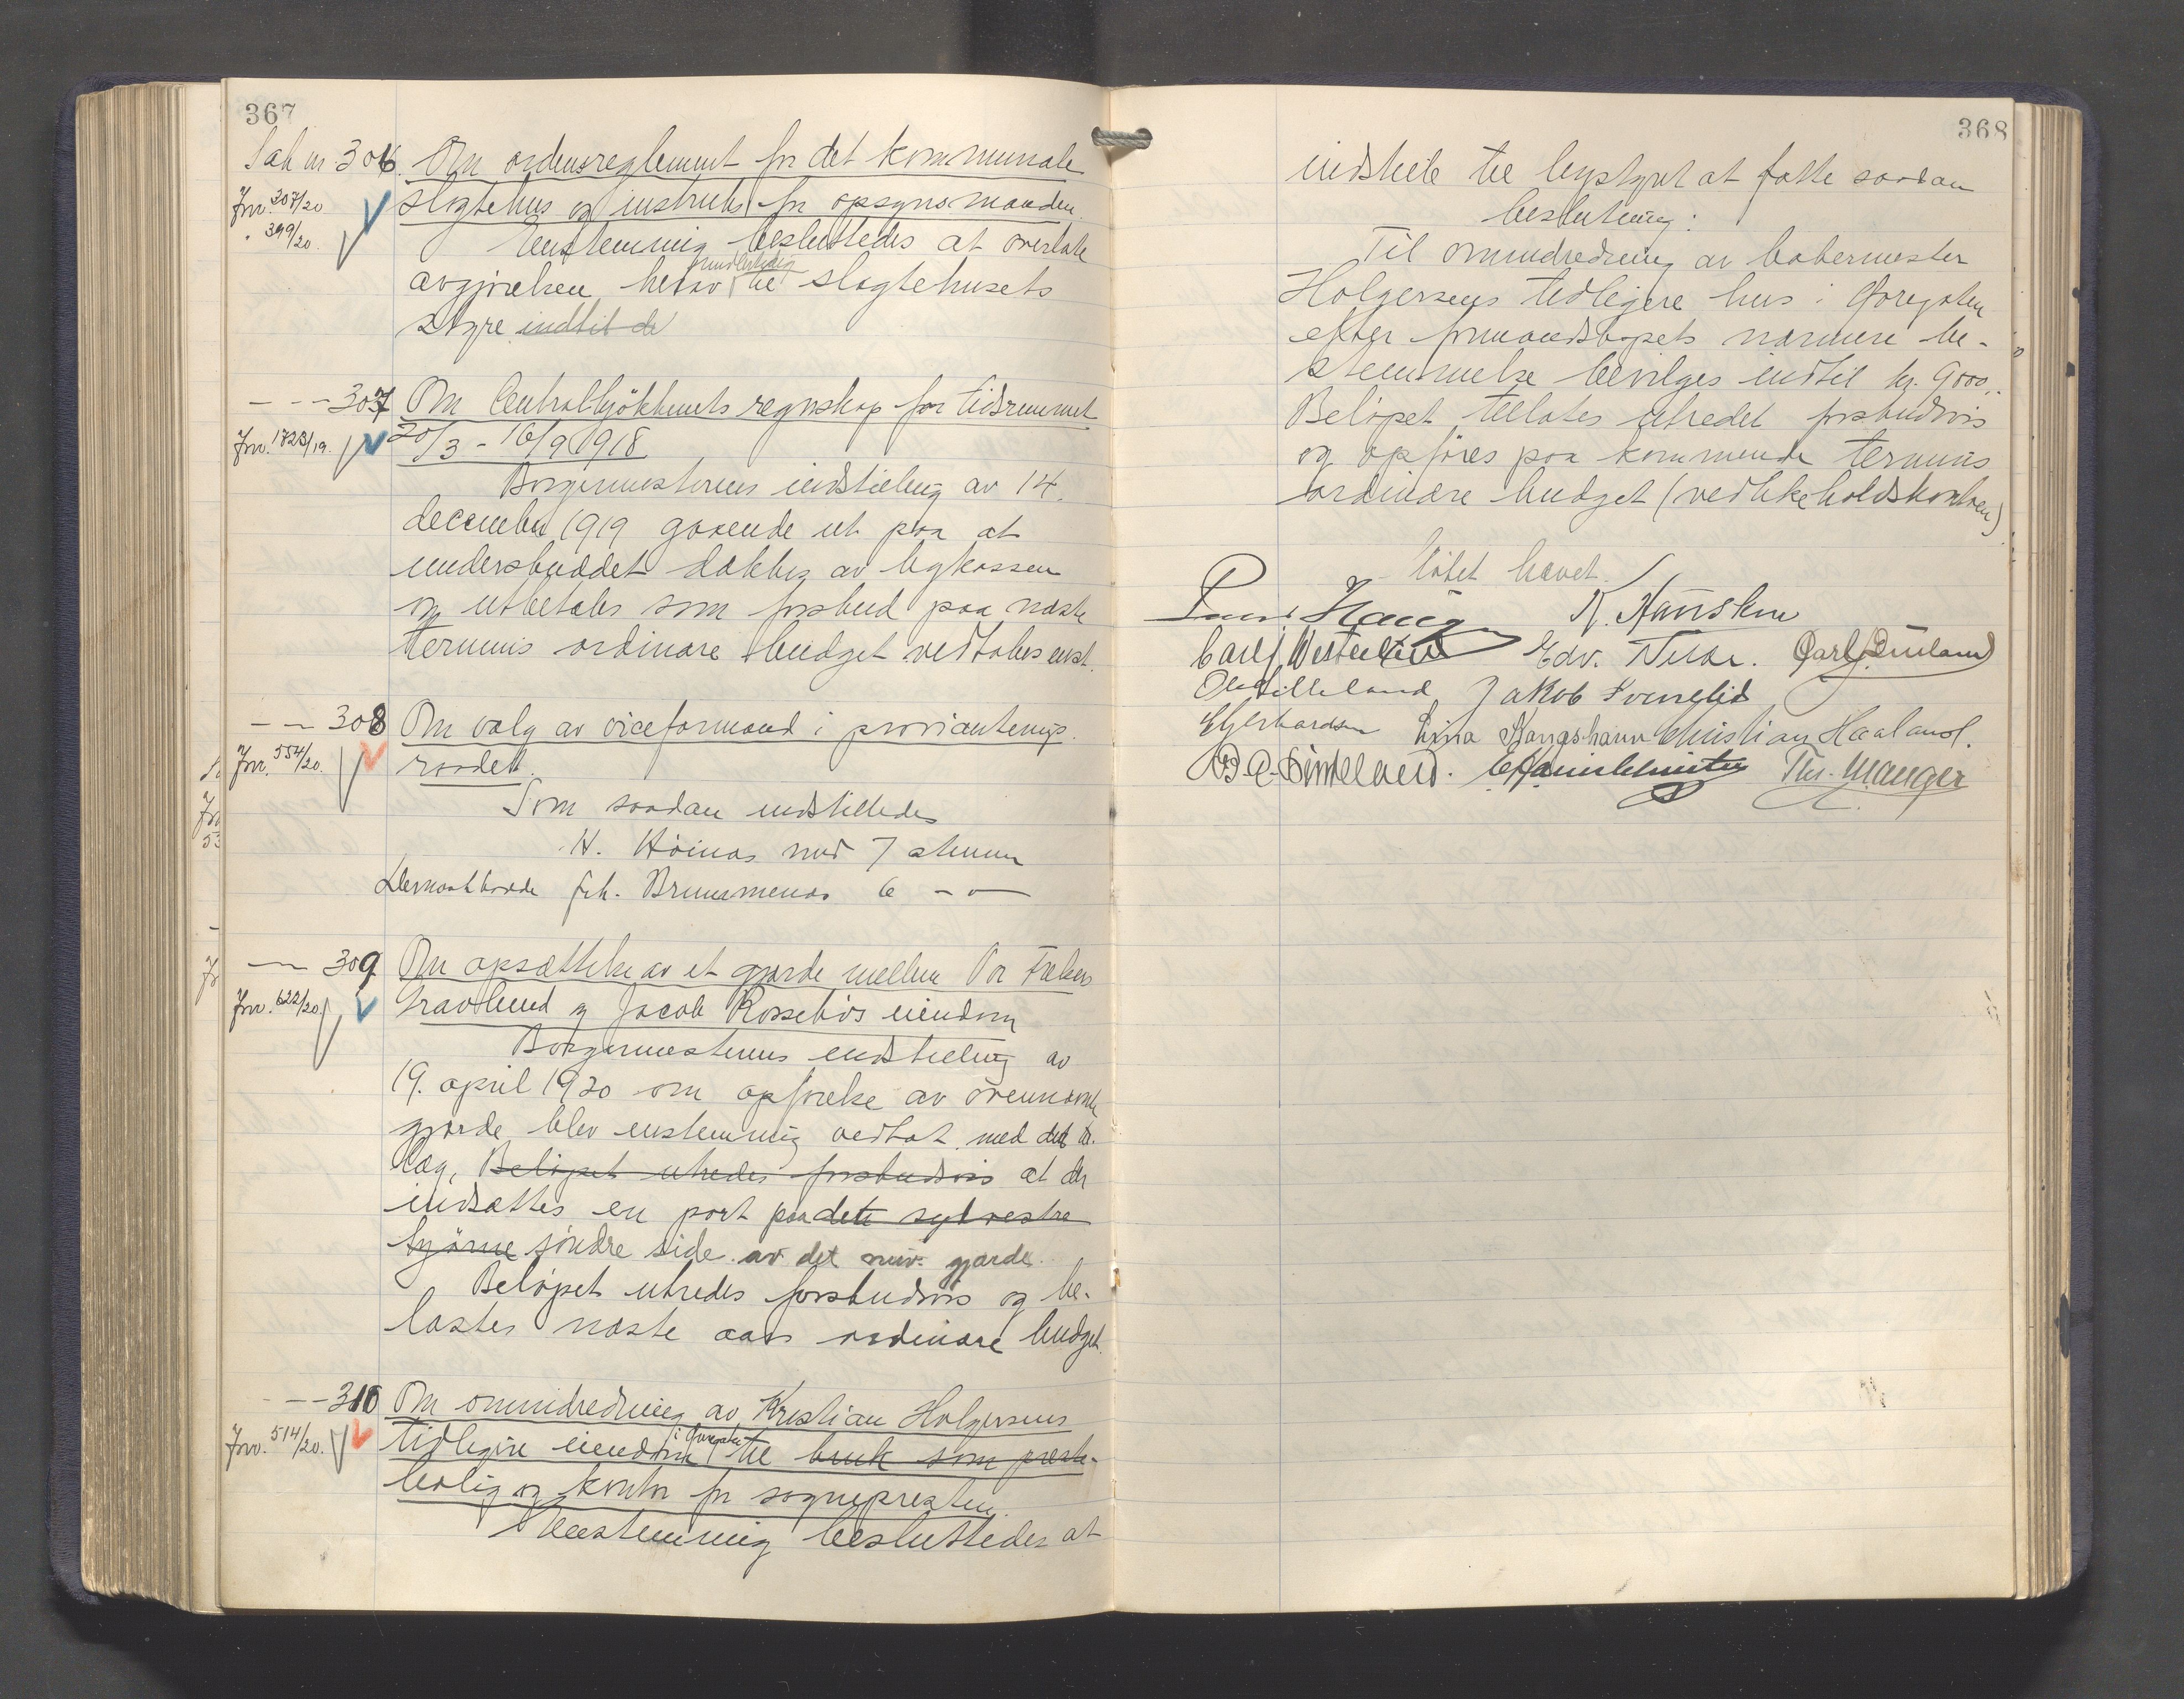 367
Sak nr. 306. Om ordensreglement for det kommunale
Jnr. 207/20 slagtehus og instruks for opsynsmanden.
" 399/20. Enstemmig besluttedes at overlate
avgjørelsen herav foreløbig til slagtehusets
styre indtil de
- - - 307 Om Centralkjøkkenets regnskap for tidsrummet
Jnr. 1723/19. 20/3 - 16/9 1918.
Borgermesterens indstilling av 14.
december 1919 gaaende ut paa at
underskuddet dækkes av bykassen
og utbetales som forskud paa næste
termins ordinære budget vedtokes enst.
- - 308 Om valg av viceformand i provianterings-
Jnr. 554/20. raadet.
Som saadan indstilledes
H. Høinæs med 7 stemmer
Dernæst hadde Joh. Brummenæs 6 - " -
- - 309 Om opsættelse av et gjærde mellem Vor Frelsers
Jnr. 622/20. Gravlund og Jacob Rossebøs eiendom
Borgermesterens indstilling av
19. april 1920 om opførelse av ovennævnte
gjærde blev enstemmig vedtat med det til-
læg, Beløpet utredes forskudsvis at der
indsættes en port paa dets sydvestre
hjørne søndre side av det nuv. gjærde.
Beløpet utredes forskudsvis og be-
lastes næste aars ordinære budget.
- - 310 Om omindredning av Kristian Holgersens
Jnr. 514/20. tidligere eiendom i Øvregaten til bruk som preste-
bolig og kontor for sognepresten.
Enstemmig besluttedes at
368
indstille til bystyret at fatte saadan
beslutning:
Til omindredning av bakermester
Holgersens tidligere hus i
efter formandskapets nærmere be-
stemmelse bevilges indtil kr. 9000,-
Beløpet tillates utredet forskudsvis
og opføres paa kommende termins
ordinære budget (vedlikeholdskontoen)
Møtet hævet.
Haugen K. Hansken
Carl J. Edv. Carl
Ole Lilleland Jakob Svinelid
E Gerhardsen Lina Kongshavn Christian Haaland.
B. A. Thv. Mauger